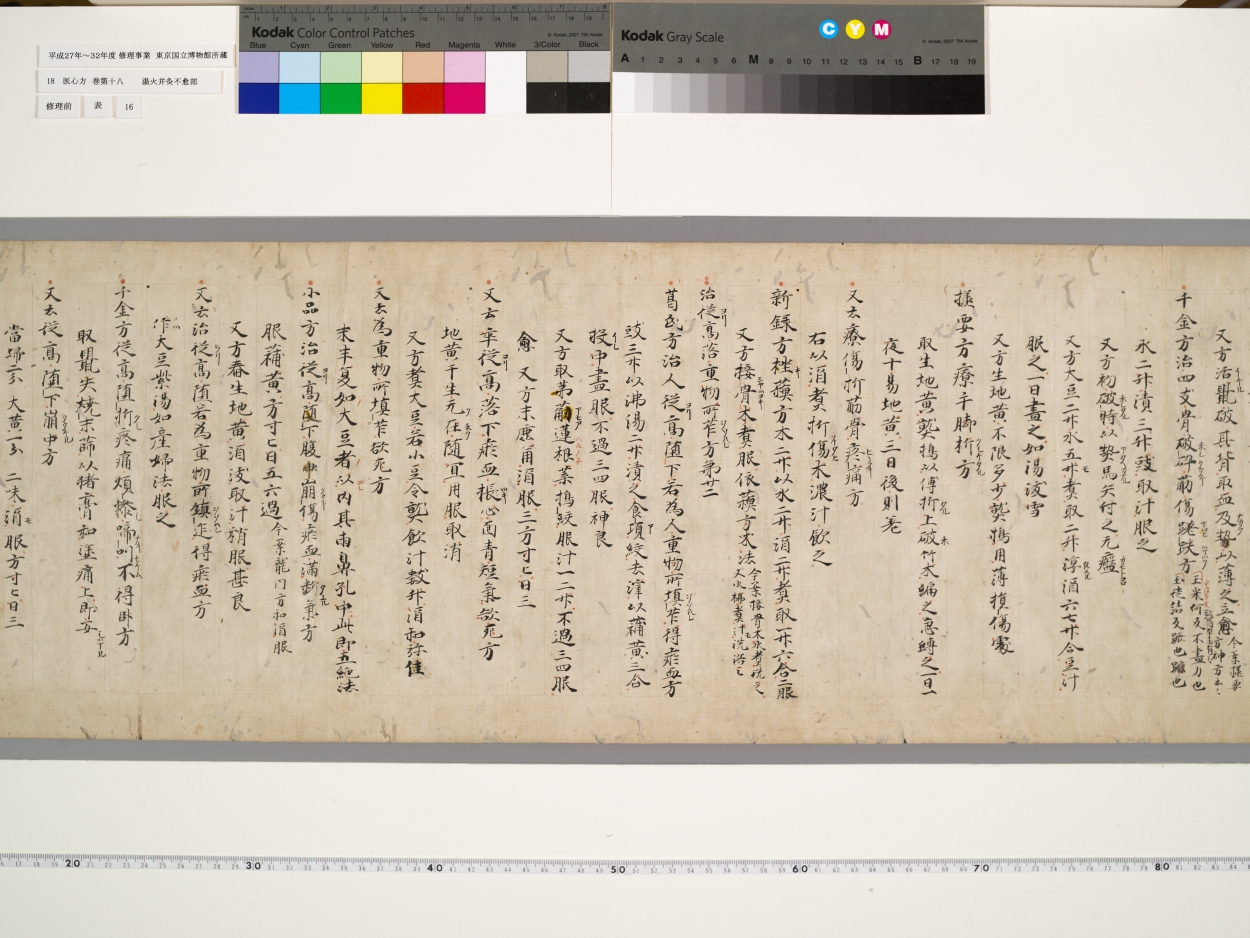 平成27年～32年度 修理事業 東京国立博物館所蔵
18 医心方 巻第十八 湯火并灸不愈部
修理前 表 16
Kodak Color Control Patches
Blue Cyan Green Yellow Red Magenta White 3/Color Black
Kodak Gray Scale
C Y M
A 1 2 3 4 5 6 M 8 9 10 11 12 13 14 15 B 17 18 19
又方治鼠破其背取血及熱以薄之立愈
千金方治四支骨破碎筋傷蹉跌方
水二升漬三升豉取汁服之
又方初破時以熱馬矢付之无瘢
又方大豆二升水五升煮取二升淳酒六七升合豆汁
服之一日盡之如湯沃雪
又方生地黄不限多少熬搗用薄損傷處
撮要方療手脚折方
取生地黄熬搗以傅折上破竹木編之急縛之一日一
夜十易地黄三日後則差
又云療傷折筋骨疼痛方
右以酒煮折傷木濃汁飲之
新録方挫
方木二升以水二升酒二升煮取一升六合二服
又方接骨木煮服依
方衣法
治從高落重物所笮方第廿二
葛氏方治人從高墮下若為人重物所填笮得瘀血方
豉三升以沸湯二升漬之食頃絞去滓以蒲黄三合
投中盡服不過三四服神良
又方取茅
蓮根葉搗絞服汁一二升不過三四服
愈 又方末
用酒服三方寸匕日三
又云卒從高落下瘀血
心面青短氣欲死方
地黄干生无在随宜用服取消
又方煮大豆若小豆令熟飲汁数升酒和弥佳
又云為重物所填笮欲死方
末半夏如大豆者以内其両鼻孔中此即五絶法
小品方治從高墮下腹中崩傷瘀血滿断氣方
服蒲黄方寸匕日五六過 今案龍門方和酒服
又方舂生地黄酒沃取汁稍服甚良
又云治從高墮若為重物所鎮迮得瘀血方
作大豆紫湯如産婦法服之
千金方從高墮折疼痛煩
啼叫不得臥方
取鼠矢焼末篩以猪膏和塗痛上即安
又云從高墮下崩中方
當歸二分 大黄一分 二味酒服方寸匕日三
20 30 40 50 60 70 80